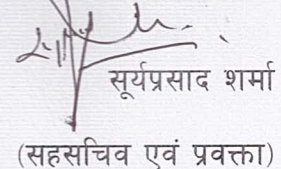 सूर्यप्रसाद शर्मा
(सहसचिव एवं प्रवक्ता)